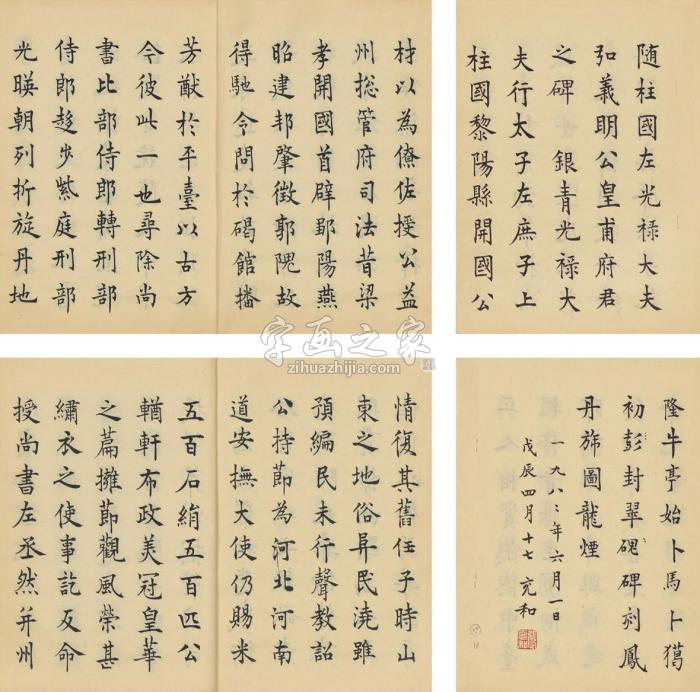 随柱國左光禄大夫
弘義明公皇甫府君
之碑 銀青光禄大
夫行太子左庶子上
柱國黎陽縣開國公
材以為僚佐授公益
州揔管府司法昔梁
孝開國首辟鄒陽燕
昭建邦肇徵郭隗故
得馳令問於碣館播
芳猷於平臺以古方
今彼此一也尋除尚
書比部侍郎轉刑部
侍郎趍步紫庭刑部
光暎朝列折旋丹地
情復其舊任于時山
東之地俗阜民澆雖
預編民未行聲教詔
公持節為河北河南
道安撫大使仍賜米
五百石絹五百匹公
輶軒布政美冠皇華
之篇擁節觀風榮甚
繡衣之使事訖反命
授尚書左丞然并州
隆牛亭始卜馬卜獦
初彭封翠碑刻鳳
丹旐圖龍煙
一九八八年六月一日
戊辰四月十七 充和
字画之家
zihuazhijia.com